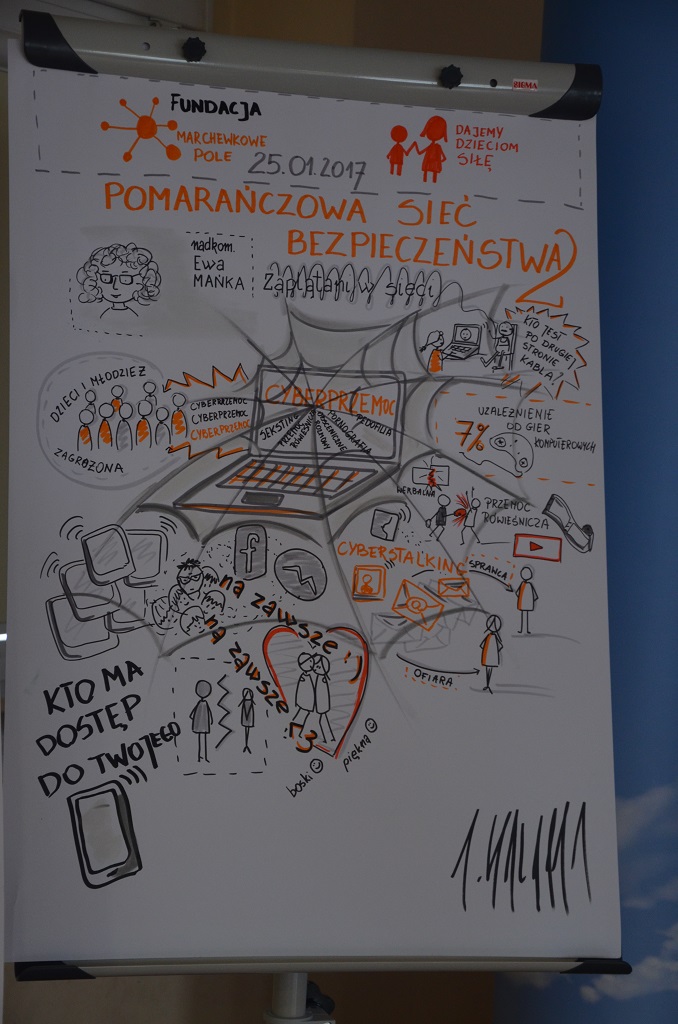 SIGMA
FUNDACJA
MARCHEWKOWE
POLE
25.01.2017
DAJEMY
DZIECIOM
SIŁĘ
POMARAŃCZOWA SIEĆ
BEZPIECZEŃSTWA 2
nadkom.
Ewa
MAŃKA
Zaplątani w sieci
KTO JEST
PO DRUGIEJ
STRONIE
KABLA!
DZIECI I MŁODZIEŻ
ZAGROŻONA
CYBERPRZEMOC
CYBERPRZEMOC
CYBERPRZEMOC
CYBERPRZEMOC
SEKSTING
PRZEMOC
RÓWIEŚNICZA
PORNOGRAFIA
PEDOFILIA
UZALEŻNIENIE
OD GIER
KOMPUTEROWYCH
7%
WERBALNA
PRZEMOC
RÓWIEŚNICZA
CYBERSTALKING
SPRAWCA
OFIARA
f
@
na zawsze :)
na zawsze
:3
KTO MA
DOSTĘP
DO TWOJEGO
boski
piękna